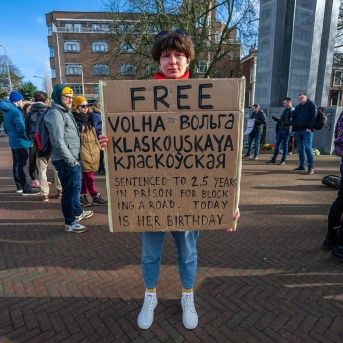 FREE
VOLHA · ВОЛЬГА
KLASKOUSKAYA
КЛАСКОЎСКАЯ
SENTENCED TO 2,5 YEARS
IN PRISON FOR BLOCK-
ING A ROAD. TODAY
IS HER BIRTHDAY